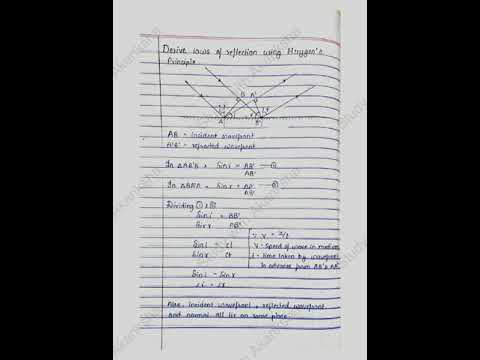 Derive laws of reflection using Huygen's
Principle
B A'
i r
A B'
AB = incident wavefront
A'B' = reflected wavefront
In ΔAB'B, sin i = BB'/AB' — ①
In ΔAB'A', sin r = AA'/AB' — ②
Dividing ① & ②
sin i = BB'
sin r AA'
sin i = ct
sin r ct
∵ v = x/t
v - speed of wave in medium
t - time taken by wavefront
to advance from
sin i = sin r
∠i = ∠r
Also, incident wavefront, reflected wavefront
and normal all lie on same plane.